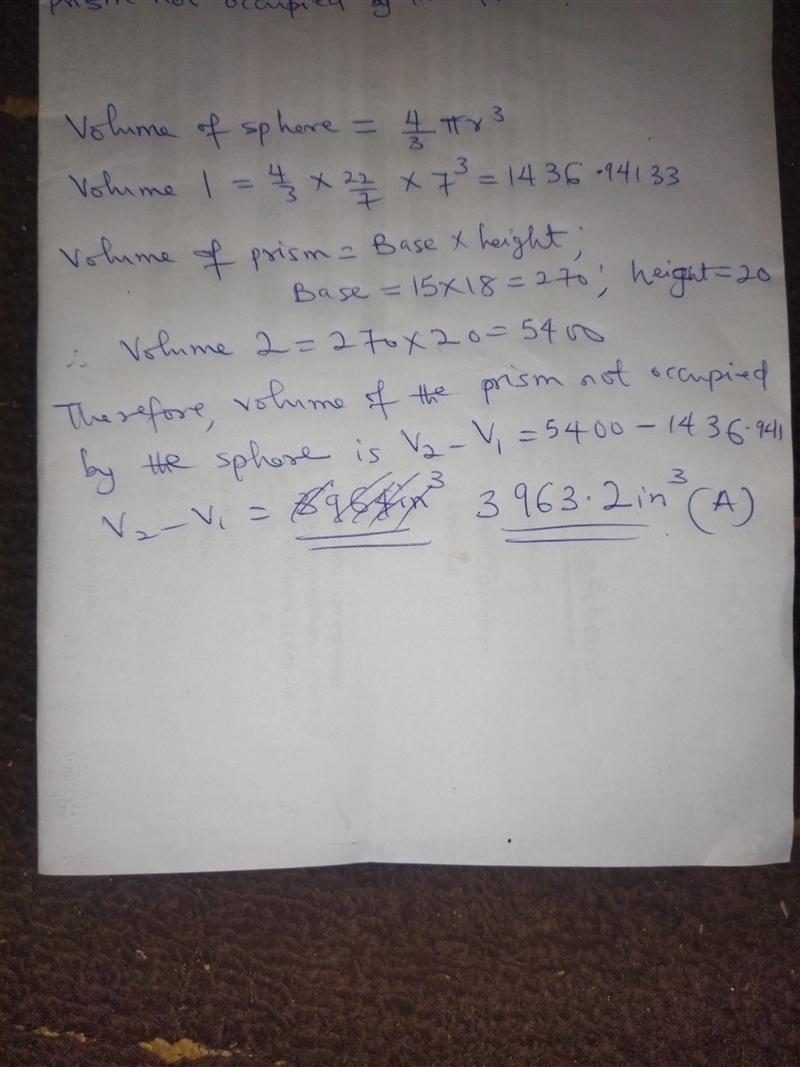 prism not occupied by
Volume of sphere = 4/3 πr³
Volume 1 = 4/3 × 22/7 × 7³ = 1436.94133
Volume of prism = Base × height;
Base = 15×18 = 270; height = 20
∴ Volume 2 = 270×20 = 5400
Therefore, volume of the prism not occupied
by the sphere is V₂ - V₁ = 5400 - 1436.941
V₂ - V₁ = 3963.2in³ (A)